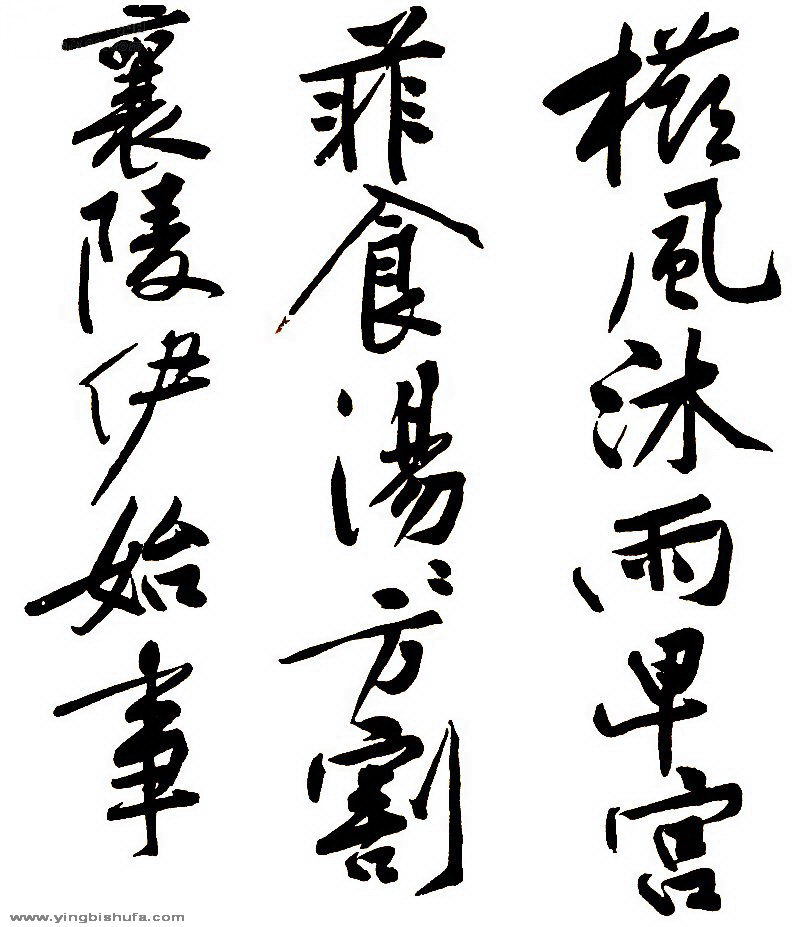 櫛風沐雨卑宮
菲食湯〻方割
襄陵伊始事
www.yingbishufa.com